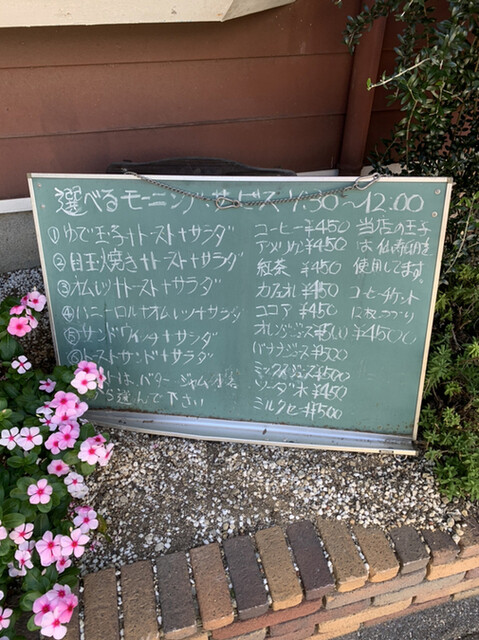 選べるモーニングサービス 7:30〜12:00
①ゆで玉子+トースト+サラダ
②目玉焼き+トースト+サラダ
③オムレツ+トースト+サラダ
④ハニーロール+オムレツ+サラダ
⑤サンドウィッチ+サラダ
⑥トーストサンド+サラダ
は、バター、ジャム
から選んで下さい
コーヒー ¥450
アメリカン ¥450
紅茶 ¥450
カフェオレ ¥450
ココア ¥450
オレンジジュース ¥500
バナナジュース ¥500
ミックスジュース ¥500
ソーダ水 ¥450
ミルクセーキ ¥500
当店の玉子
は
使用してます
コーヒーチケット
12枚つづり
¥4500